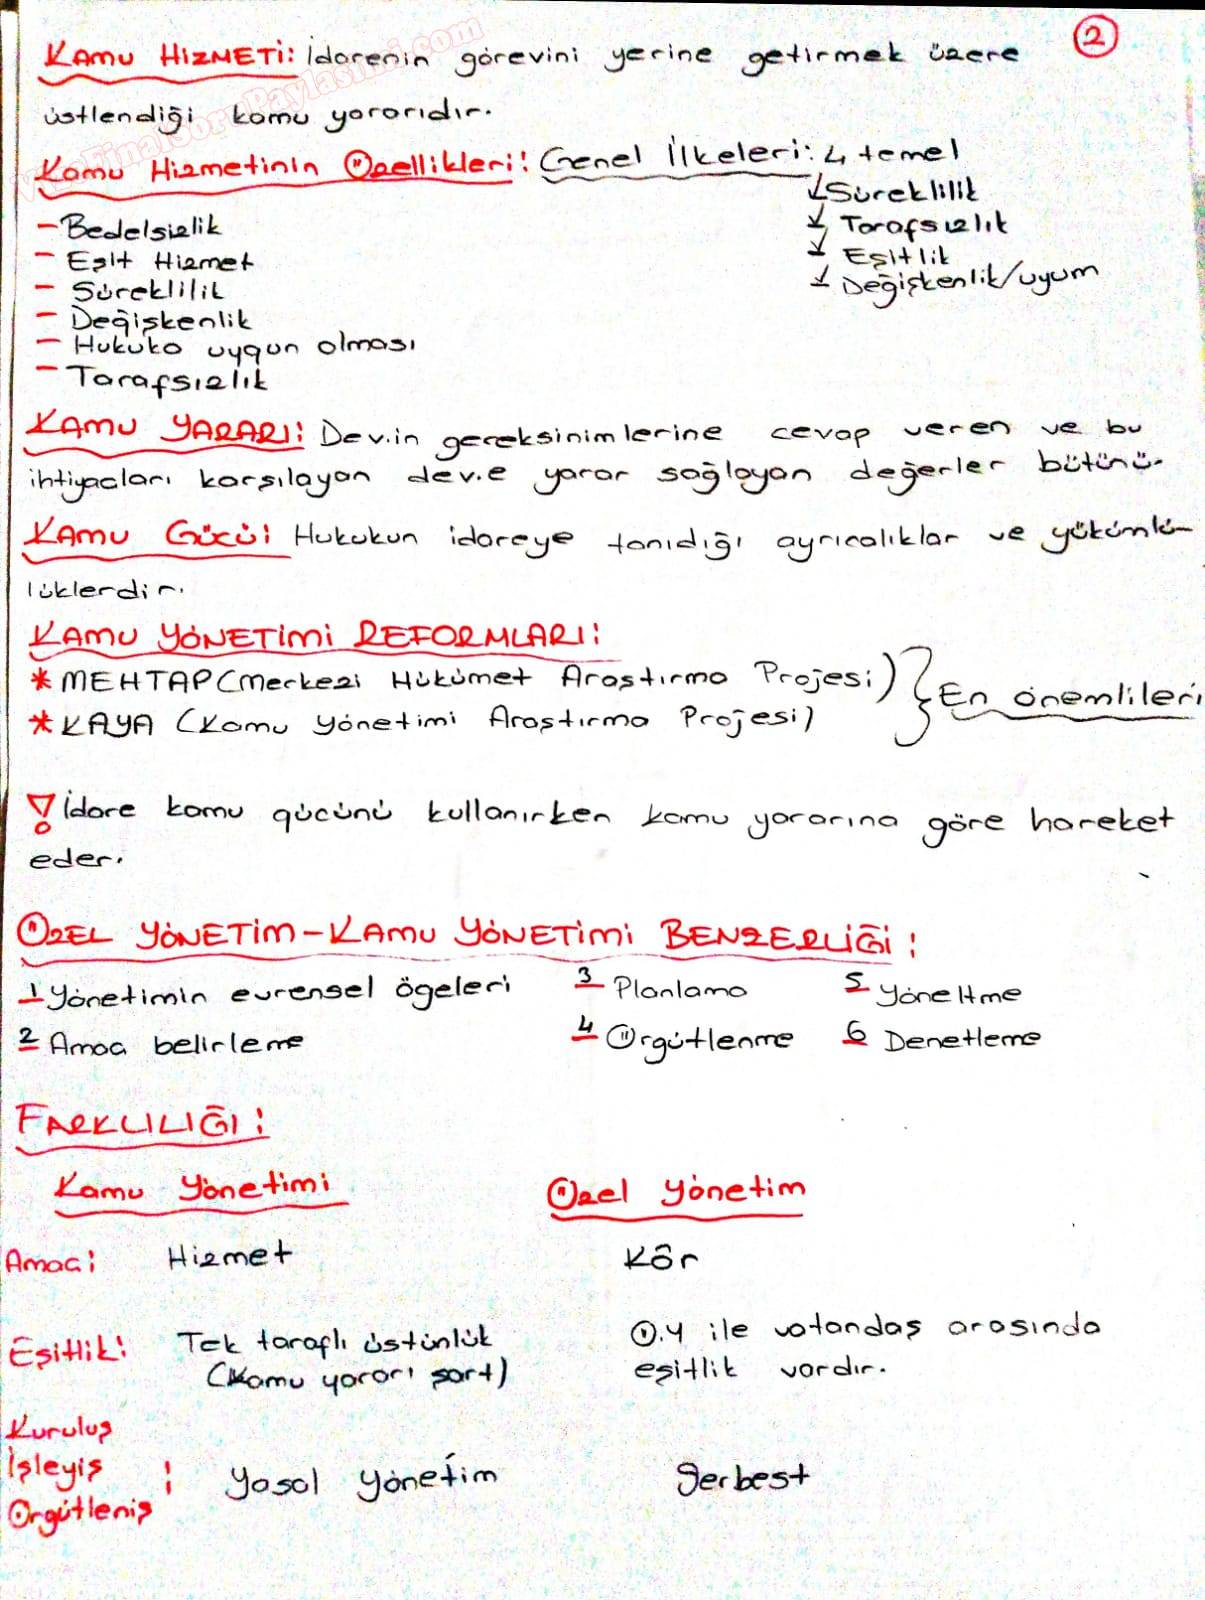 2
KAMU HİZMETİ: İdarenin görevini yerine getirmek üzere
üstlendiği kamu yararıdır.
Kamu Hizmetinin Özellikleri: Genel İlkeleri: 4 temel
Süreklilik
Tarafsızlık
Eşitlik
Değişkenlik/uyum
- Bedelsizlik
- Eşit Hizmet
- Süreklilik
- Değişkenlik
- Hukuka uygun olması
- Tarafsızlık
KAMU YARARI: Dev.in gereksinimlerine cevap veren ve bu
ihtiyaçları karşılayan dev.e yarar sağlayan değerler bütünü.
KAMU GÜCÜ: Hukukun idareye tanıdığı ayrıcalıklar ve yükümlü-
lüklerdir.
KAMU YÖNETİMİ REFORMLARI:
* MEHTAP (Merkezi Hükümet Araştırma Projesi)
* KAYA (Kamu Yönetimi Araştırma Projesi)
En önemlileri
! İdare kamu gücünü kullanırken kamu yararına göre hareket
eder.
ÖZEL YÖNETİM-KAMU YÖNETİMİ BENZERLİĞİ:
1 Yönetimin evrensel ögeleri 3 Planlama 5 Yöneltme
2 Amaç belirleme 4 Örgütlenme 6 Denetleme
FARKLILIĞI:
Kamu Yönetimi Özel Yönetim
Amaç: Hizmet Kâr
Eşitlik: Tek taraflı üstünlük Ö.Y ile vatandaş arasında
(Kamu yararı şart) eşitlik vardır.
Kuruluş
İşleyiş : Yasal Yönetim Serbest
Örgütleniş